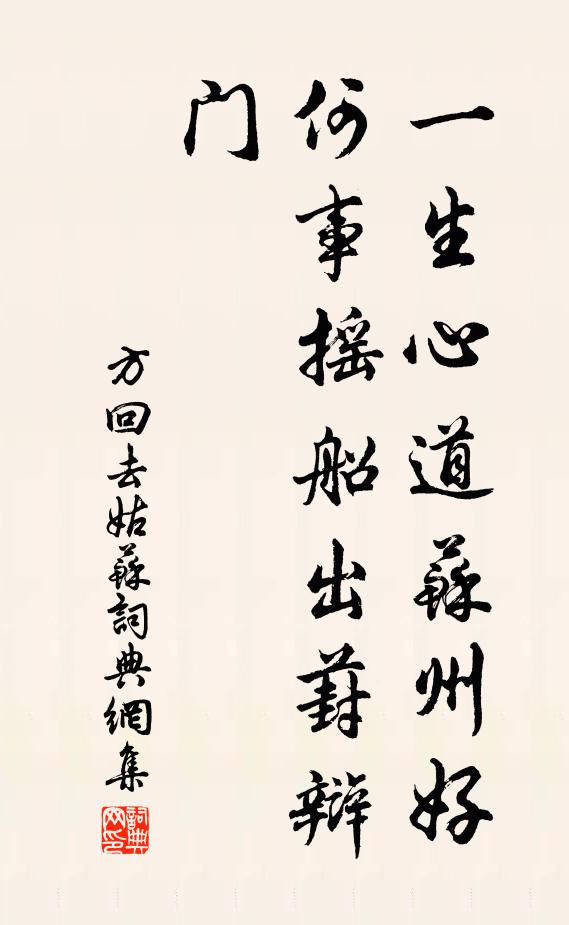 一生心道蘇州好
何事摇船出葑
門
方回去姑蘇詞典網集
詞典網印